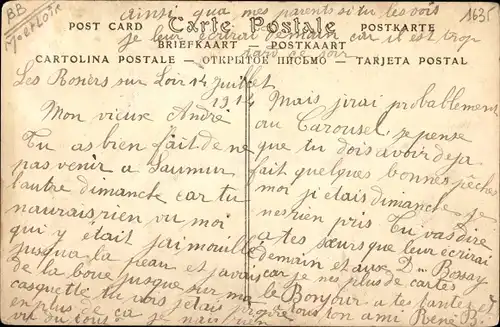 BB
M et Loire
1631
ainsi qua mes parents si tu les vois
je leur écrirai demain car il est trop
tard ce soir
POST CARD Carte Postale POSTKARTE
BRIEFKAART POSTKAART
CARTOLINA POSTALE — ОТКРЫТОЕ ПИСЬМО — TARJETA POSTAL
Les Rosiers sur Loir 14 Juillet
1914
Mon vieux André
Tu as bien fait de ne
pas venir a Saumur
l'autre dimanche car tu
naurais rien vu moi
qui y était j'ai mouillé
jusqua la peau et javais
de la boue jusque sur ma
casquette tu vois jetais propre
en plus de ça je nai rien
vu du tous
Mais jirai probablement
au Carousel je pense
que tu dois avoir deja
fait quelques bonnes pêches
moi jetais dimanche je
nes rien pris Tu vas dire
a tes sœurs que leur écrirai
demain et aux D Bossay
car je nes plus de cartes
le Bonjour a tes tantes et
tous ton ami René B